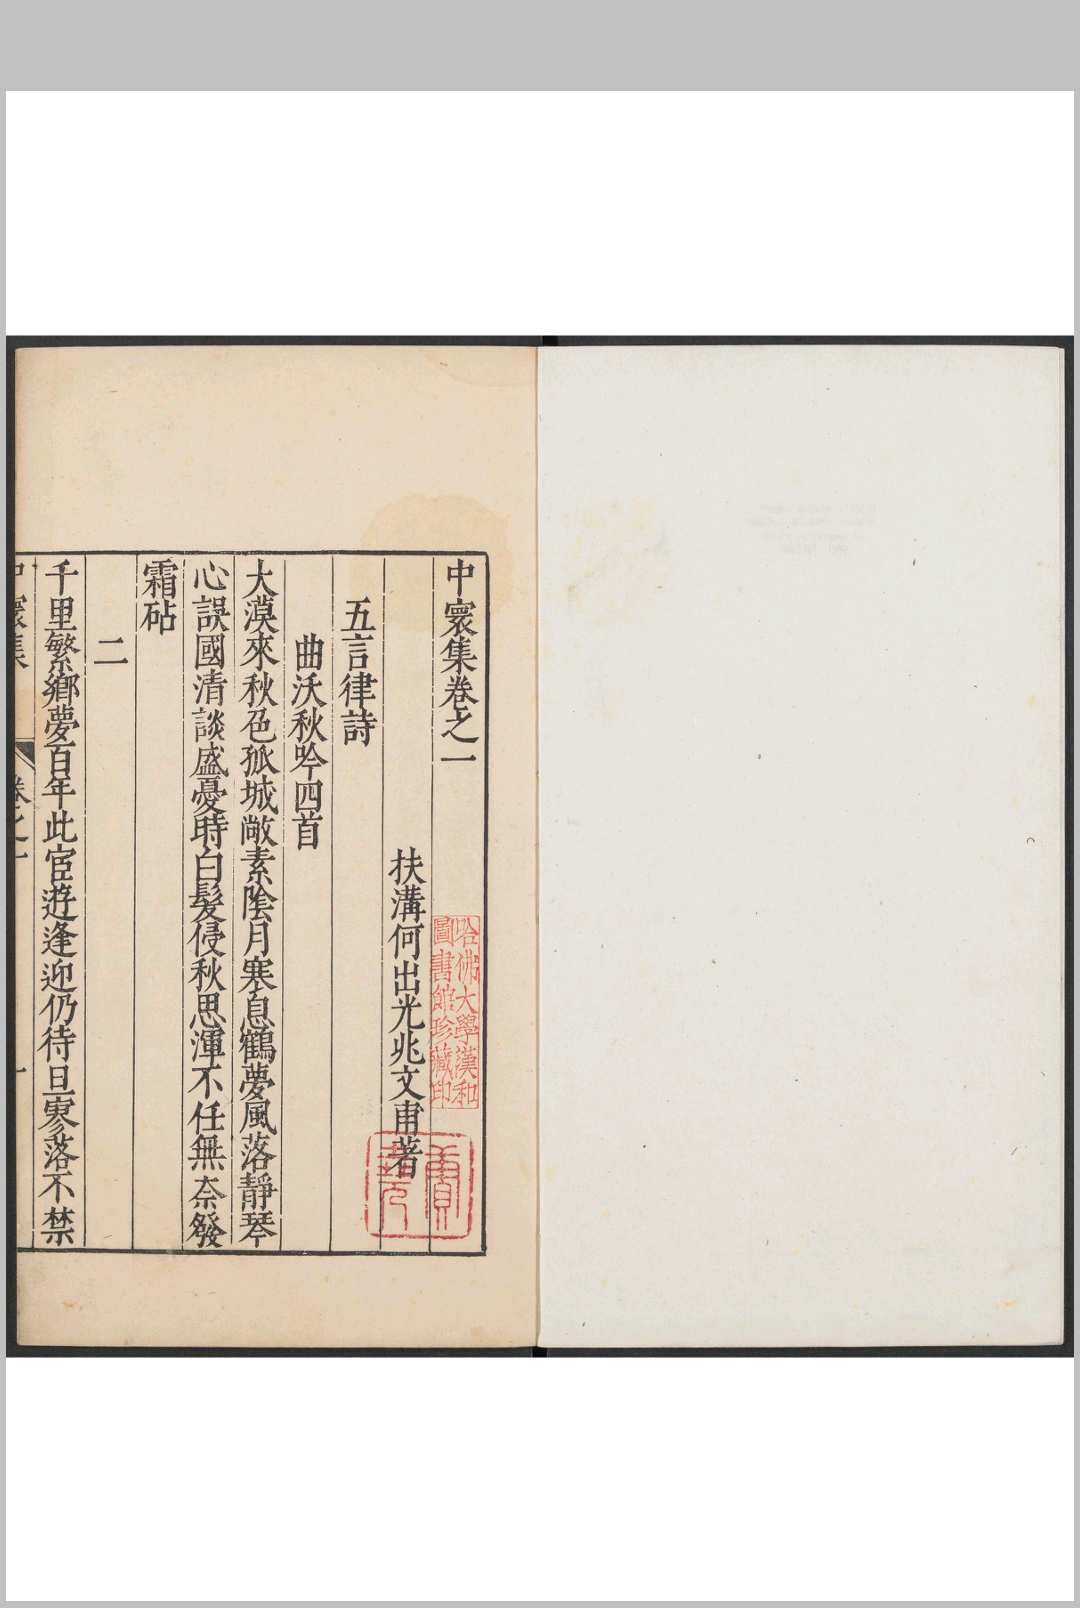 中寰集卷之一
扶溝何出光兆文甫著
五言律詩
曲沃秋吟四首
大漠來秋色孤城敞素陰月寒息鶴夢風落靜琴
心誤國清談盛憂時白髮侵秋思渾不任無奈發
霜砧
二
千里繁鄉夢百年此宦遊逢迎仍待旦寥落不禁
中寰集 卷之一 一
哈佛大學漢和
圖書館珍藏印